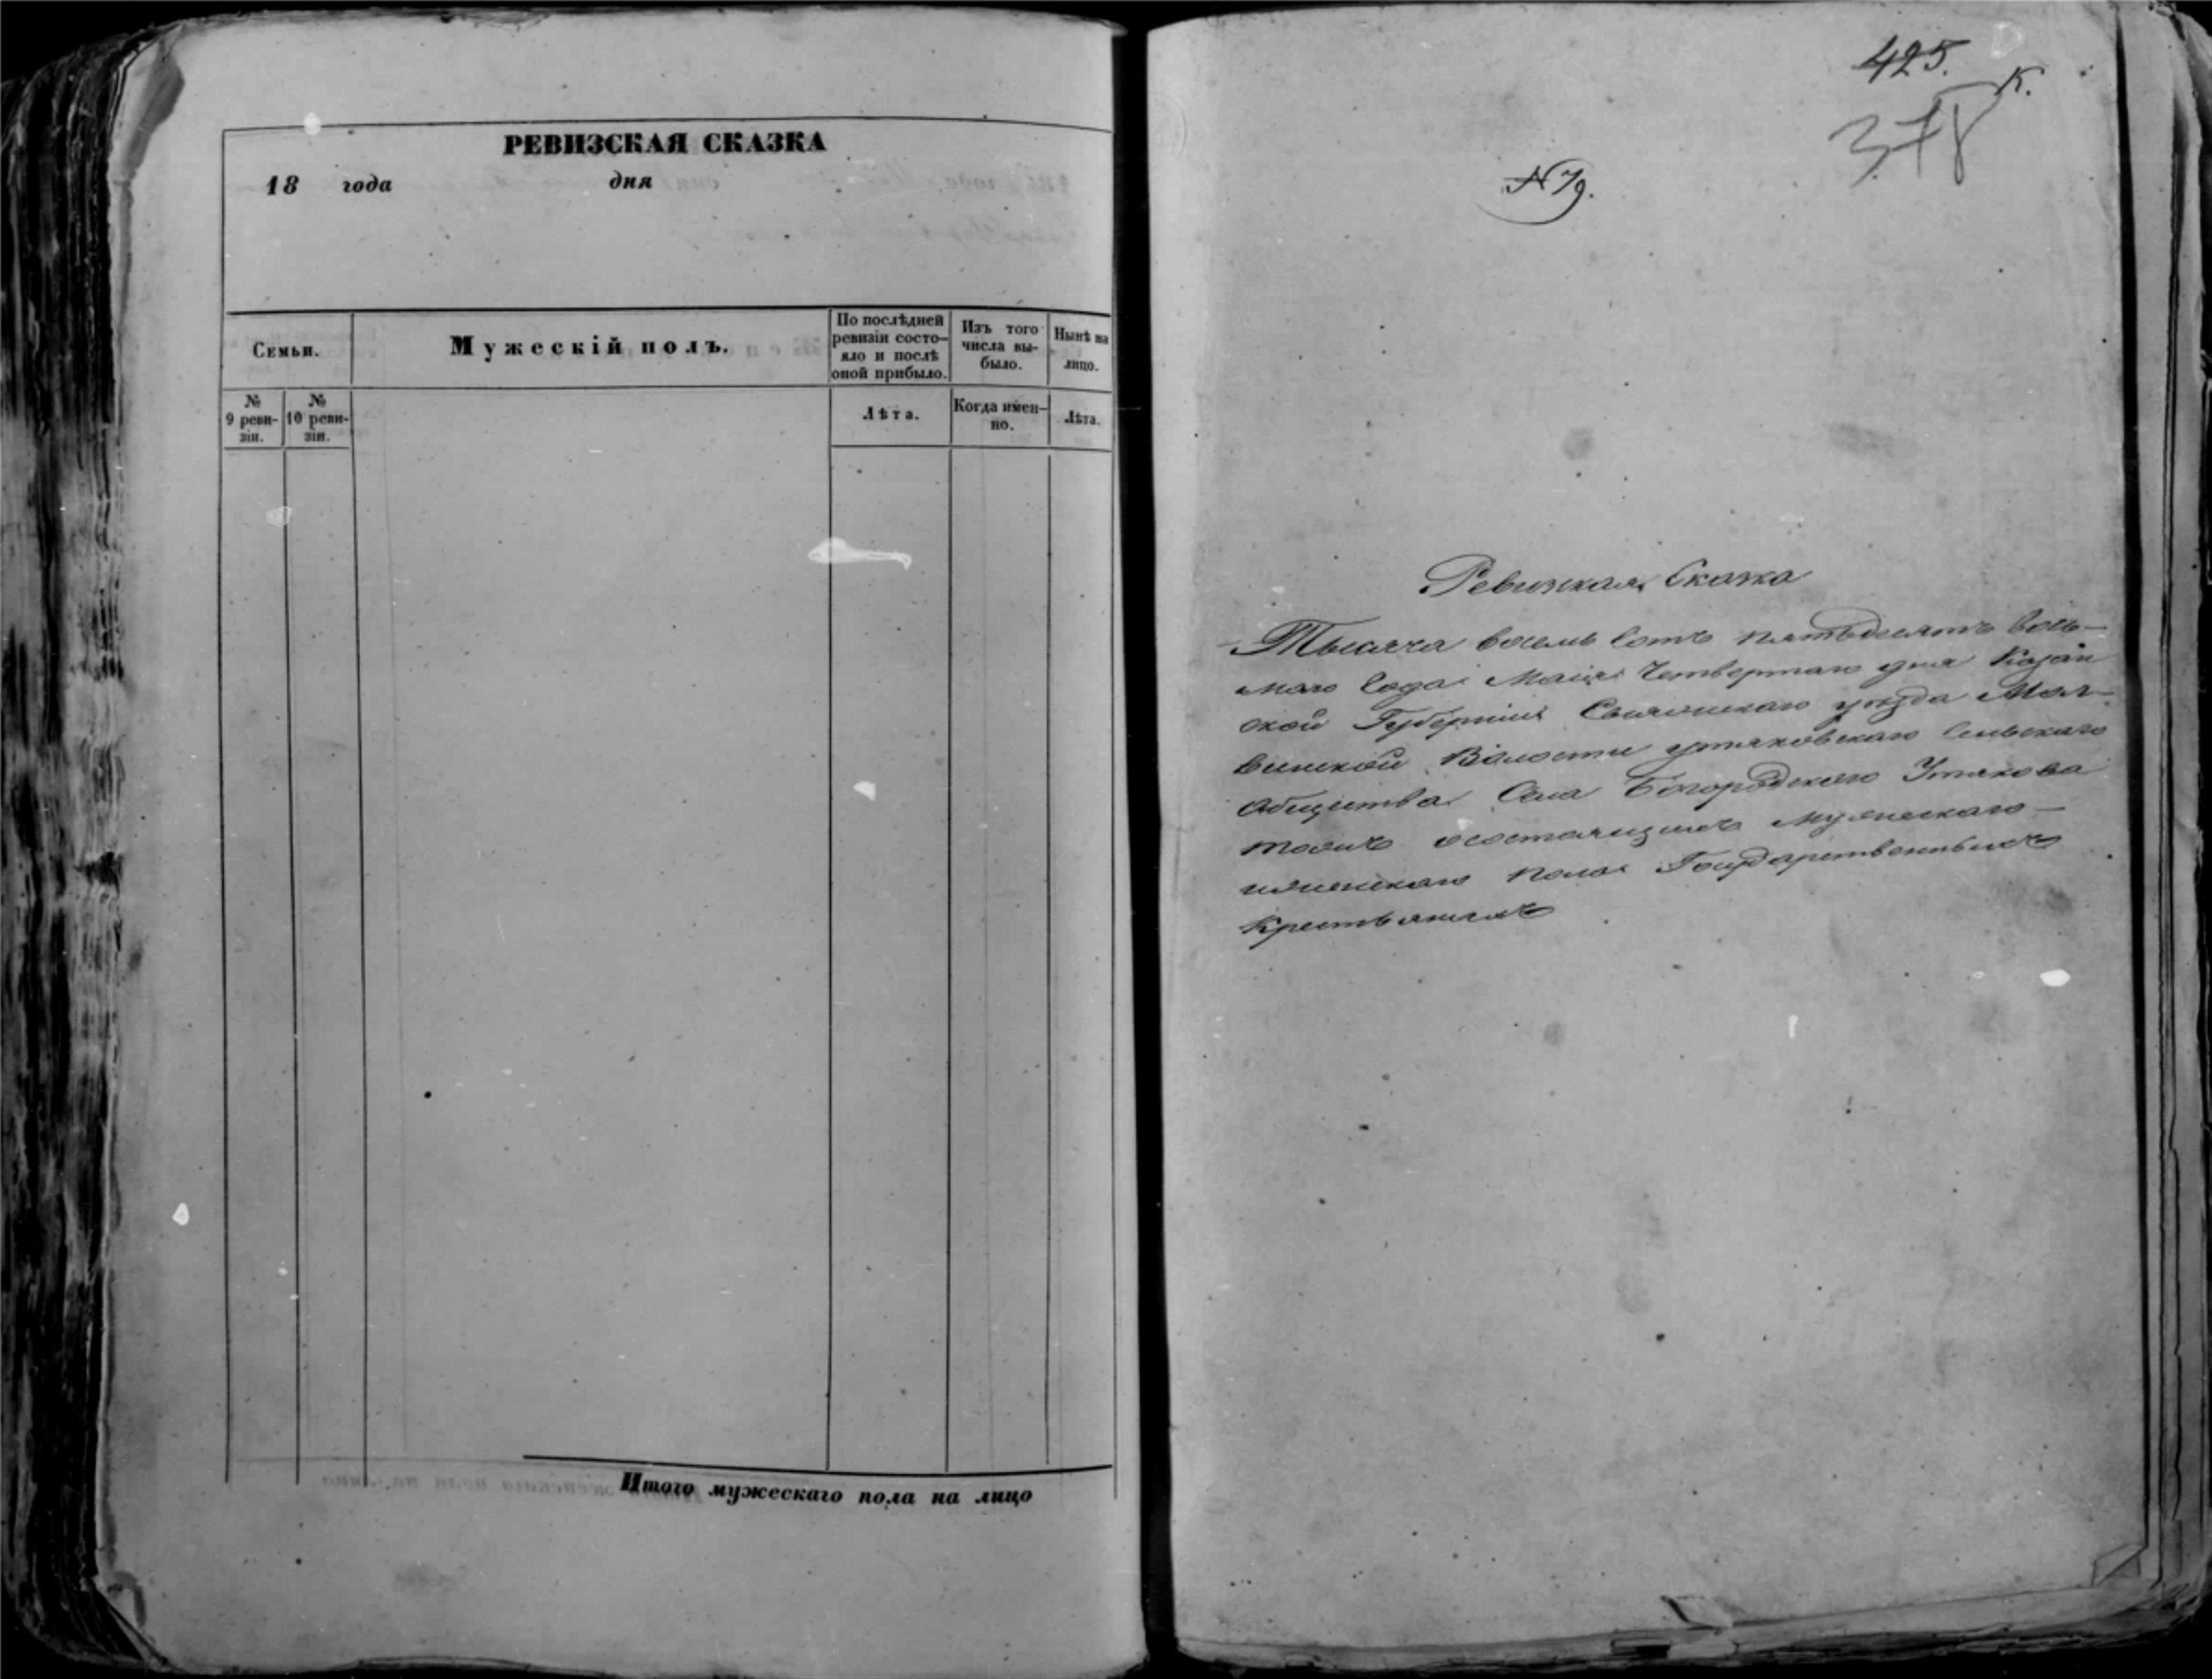 РЕВИЗСКАЯ СКАЗКА
18 года дня
Семьи.
Мужескій полъ.
По послѣдней
ревизіи состо-
яло и послѣ
оной прибыло.
Изъ того
числа вы-
было.
Нынѣ на
лицо.
№
9 реви-
зіи.
№
10 реви-
зіи.
Лѣта.
Когда имен-
но.
Лѣта.
Итого мужескаго пола на лицо
425.
К.
378
№ 79.
Ревизская Сказка
Тысяча восемь сотъ пятьдесятъ вось-
маго года Маія четвертаго дня Казан
ской Губерніи Свіяжскаго уѣзда Мол-
винской Волости утяковскаго сельскаго
общества Села Богородскаго Утякова
тожъ о состоящихъ мужескаго
и женскаго пола Государственныхъ
крестьянахъ